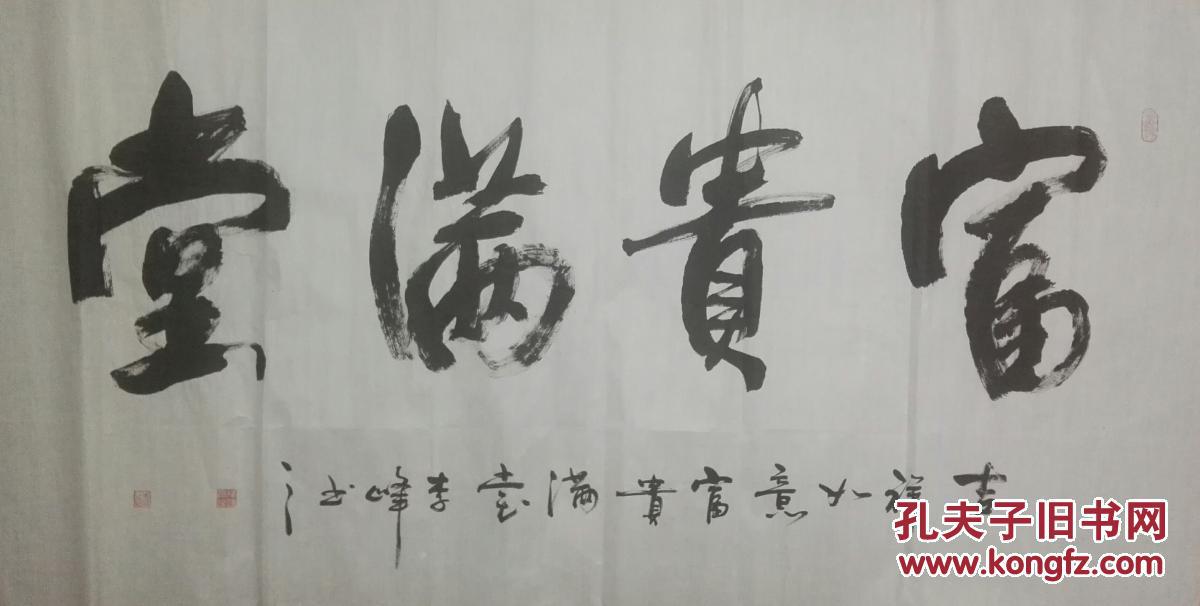 富貴滿堂
吉祥如意富貴滿堂李峰书
孔夫子旧书网
www.kongfz.com